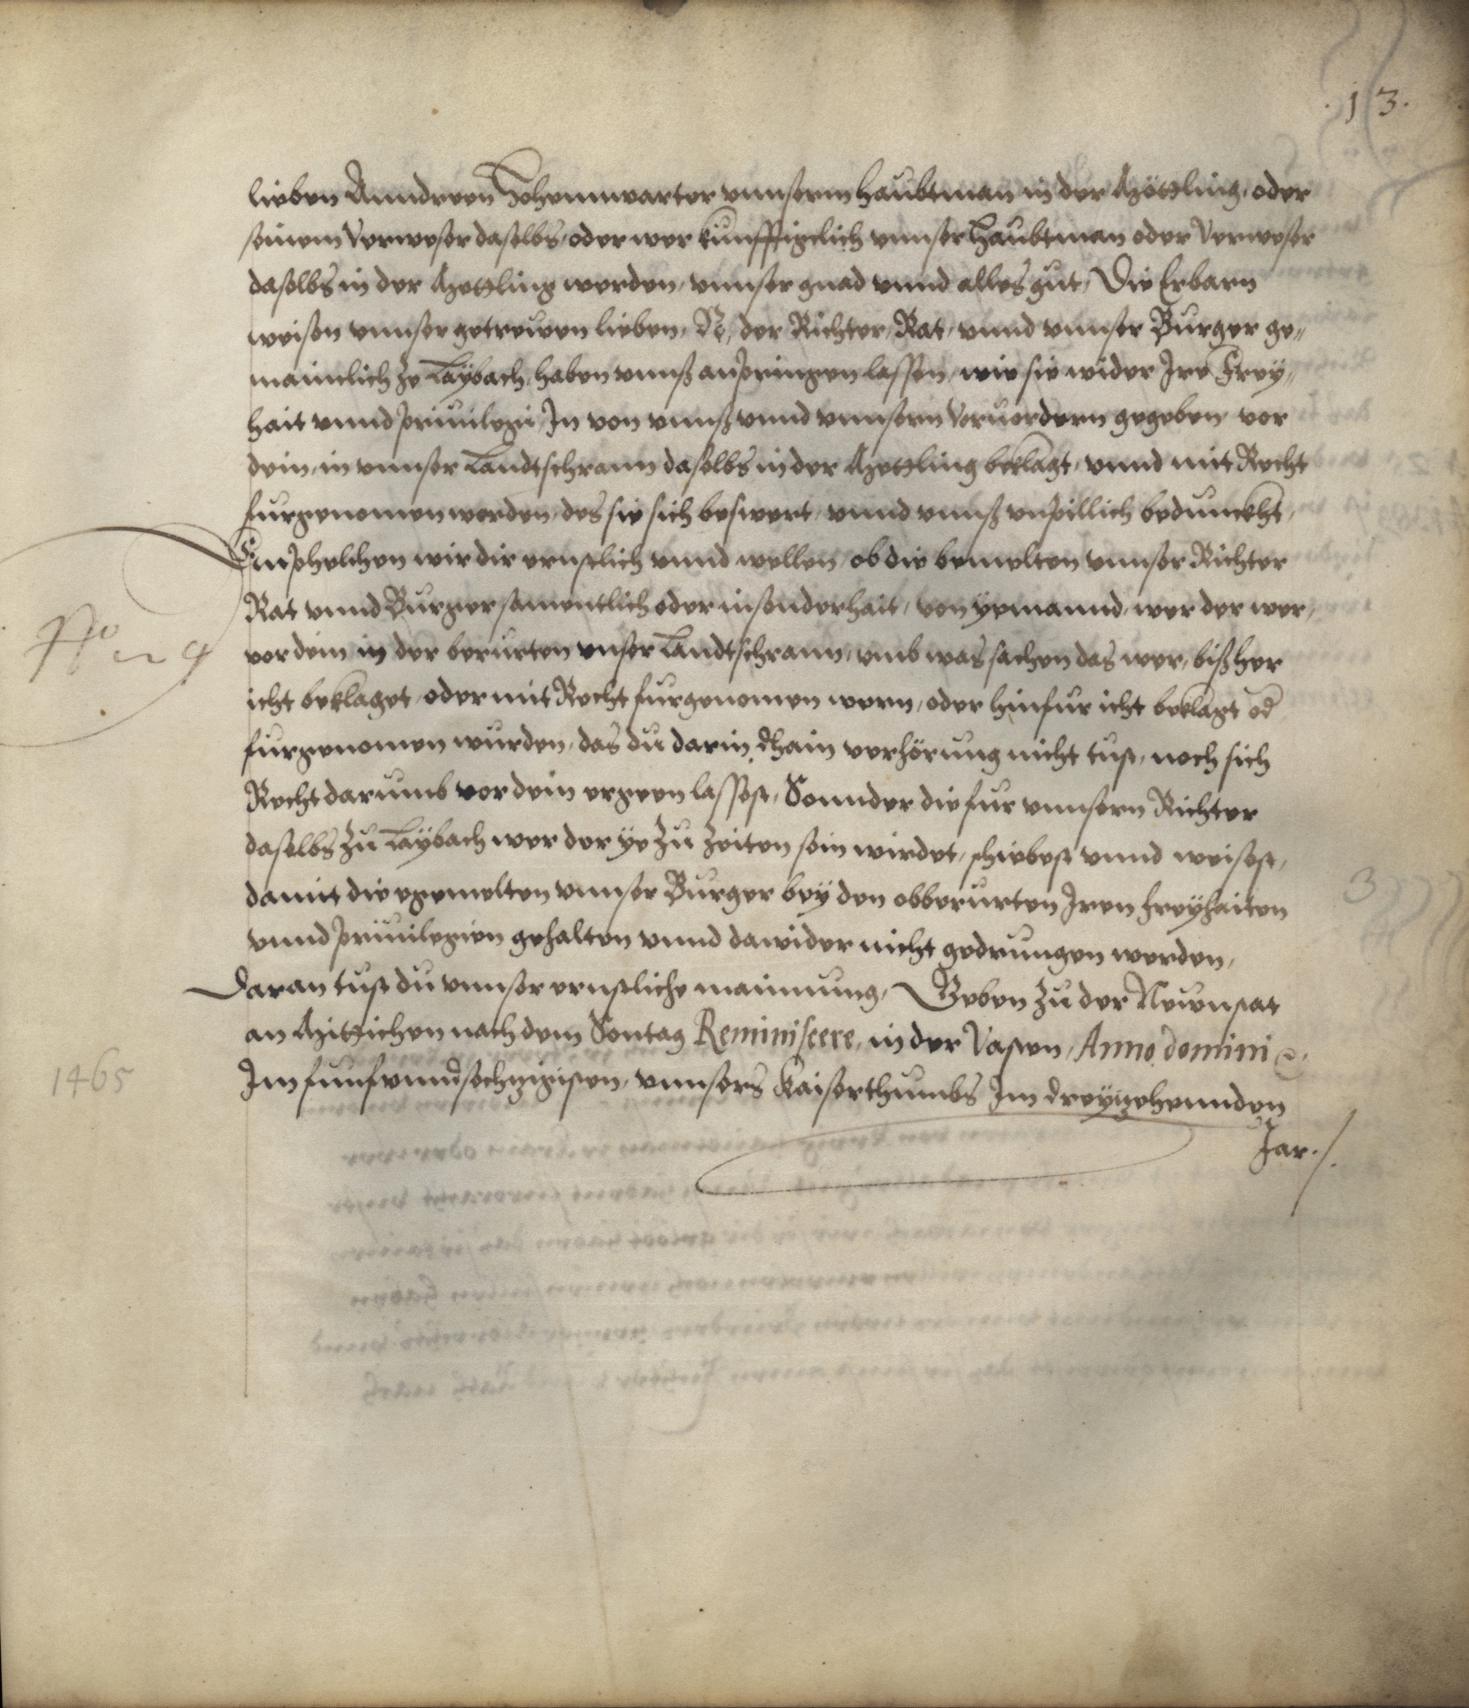 .13.
lieben Anndreen Hohennwarter vnnserm haubtman in der Möttling, oder
seinem Verweser daselbs, oder wer kunfftigclich vnnser Haubtman oder Verweser
daselbs in der Mettling werden, vnnser gnad vnnd alles gut, Die Erbarn
weisen vnnser getrewen lieben, N. der Richter, Rat, vnnd vnnser Burger ge„
mainlich ze Laÿbach, haben vnnß anbringen lassen, wie sie wider Ire Freÿ„
hait vnnd priuilegi, In von vnnß vnnd vnnsern Voruordern gegeben vor
dein, in vnnser Landtschrann daselbs in der Mettling beklagt, vnnd mit Recht
furgenomen werden, des sie sich beswert, vnnd vnnß vnbillich beduncklt,
Emphelchen wir dir ernstlich vnnd wellen, ob die bemelten vnnser Richter
Rat vnnd Burger samentlich oder in sonderhait, von ÿemannd, wer der wer,
vor dein, in der berürten vnser Landtschrann, vmb was sachen das wer, bißher
icht beklaget, oder mit Recht furgenomen wern, oder hinfur icht beklagt od
furgenomen wurden, das du darin dhain verhörung nicht tust, noch sich
Recht darumb vor dein ergeen lassest, Sonnder die fur vnnsern Richter
daselbs zu Laÿbach wer der ÿe zu Zeiten sein wirdet, schiebest vnnd weisest,
damit die egemelten vnnser Burger beÿ den obberurten Iren freÿhaiten
vnnd priuilegien gehalten vnnd dawider nicht gedrungen werden,
Daran tust du vnnser ernstliche mainnung, Geben zu der Newnstat
an Mittichen nach dem Sontag Reminiscere, in der Vasten, Anno domini ꝛc.
Im funfvnndsechzigisten, vnnsers Kaiserthumbs Im dreÿzehennden
Jar./.
1465